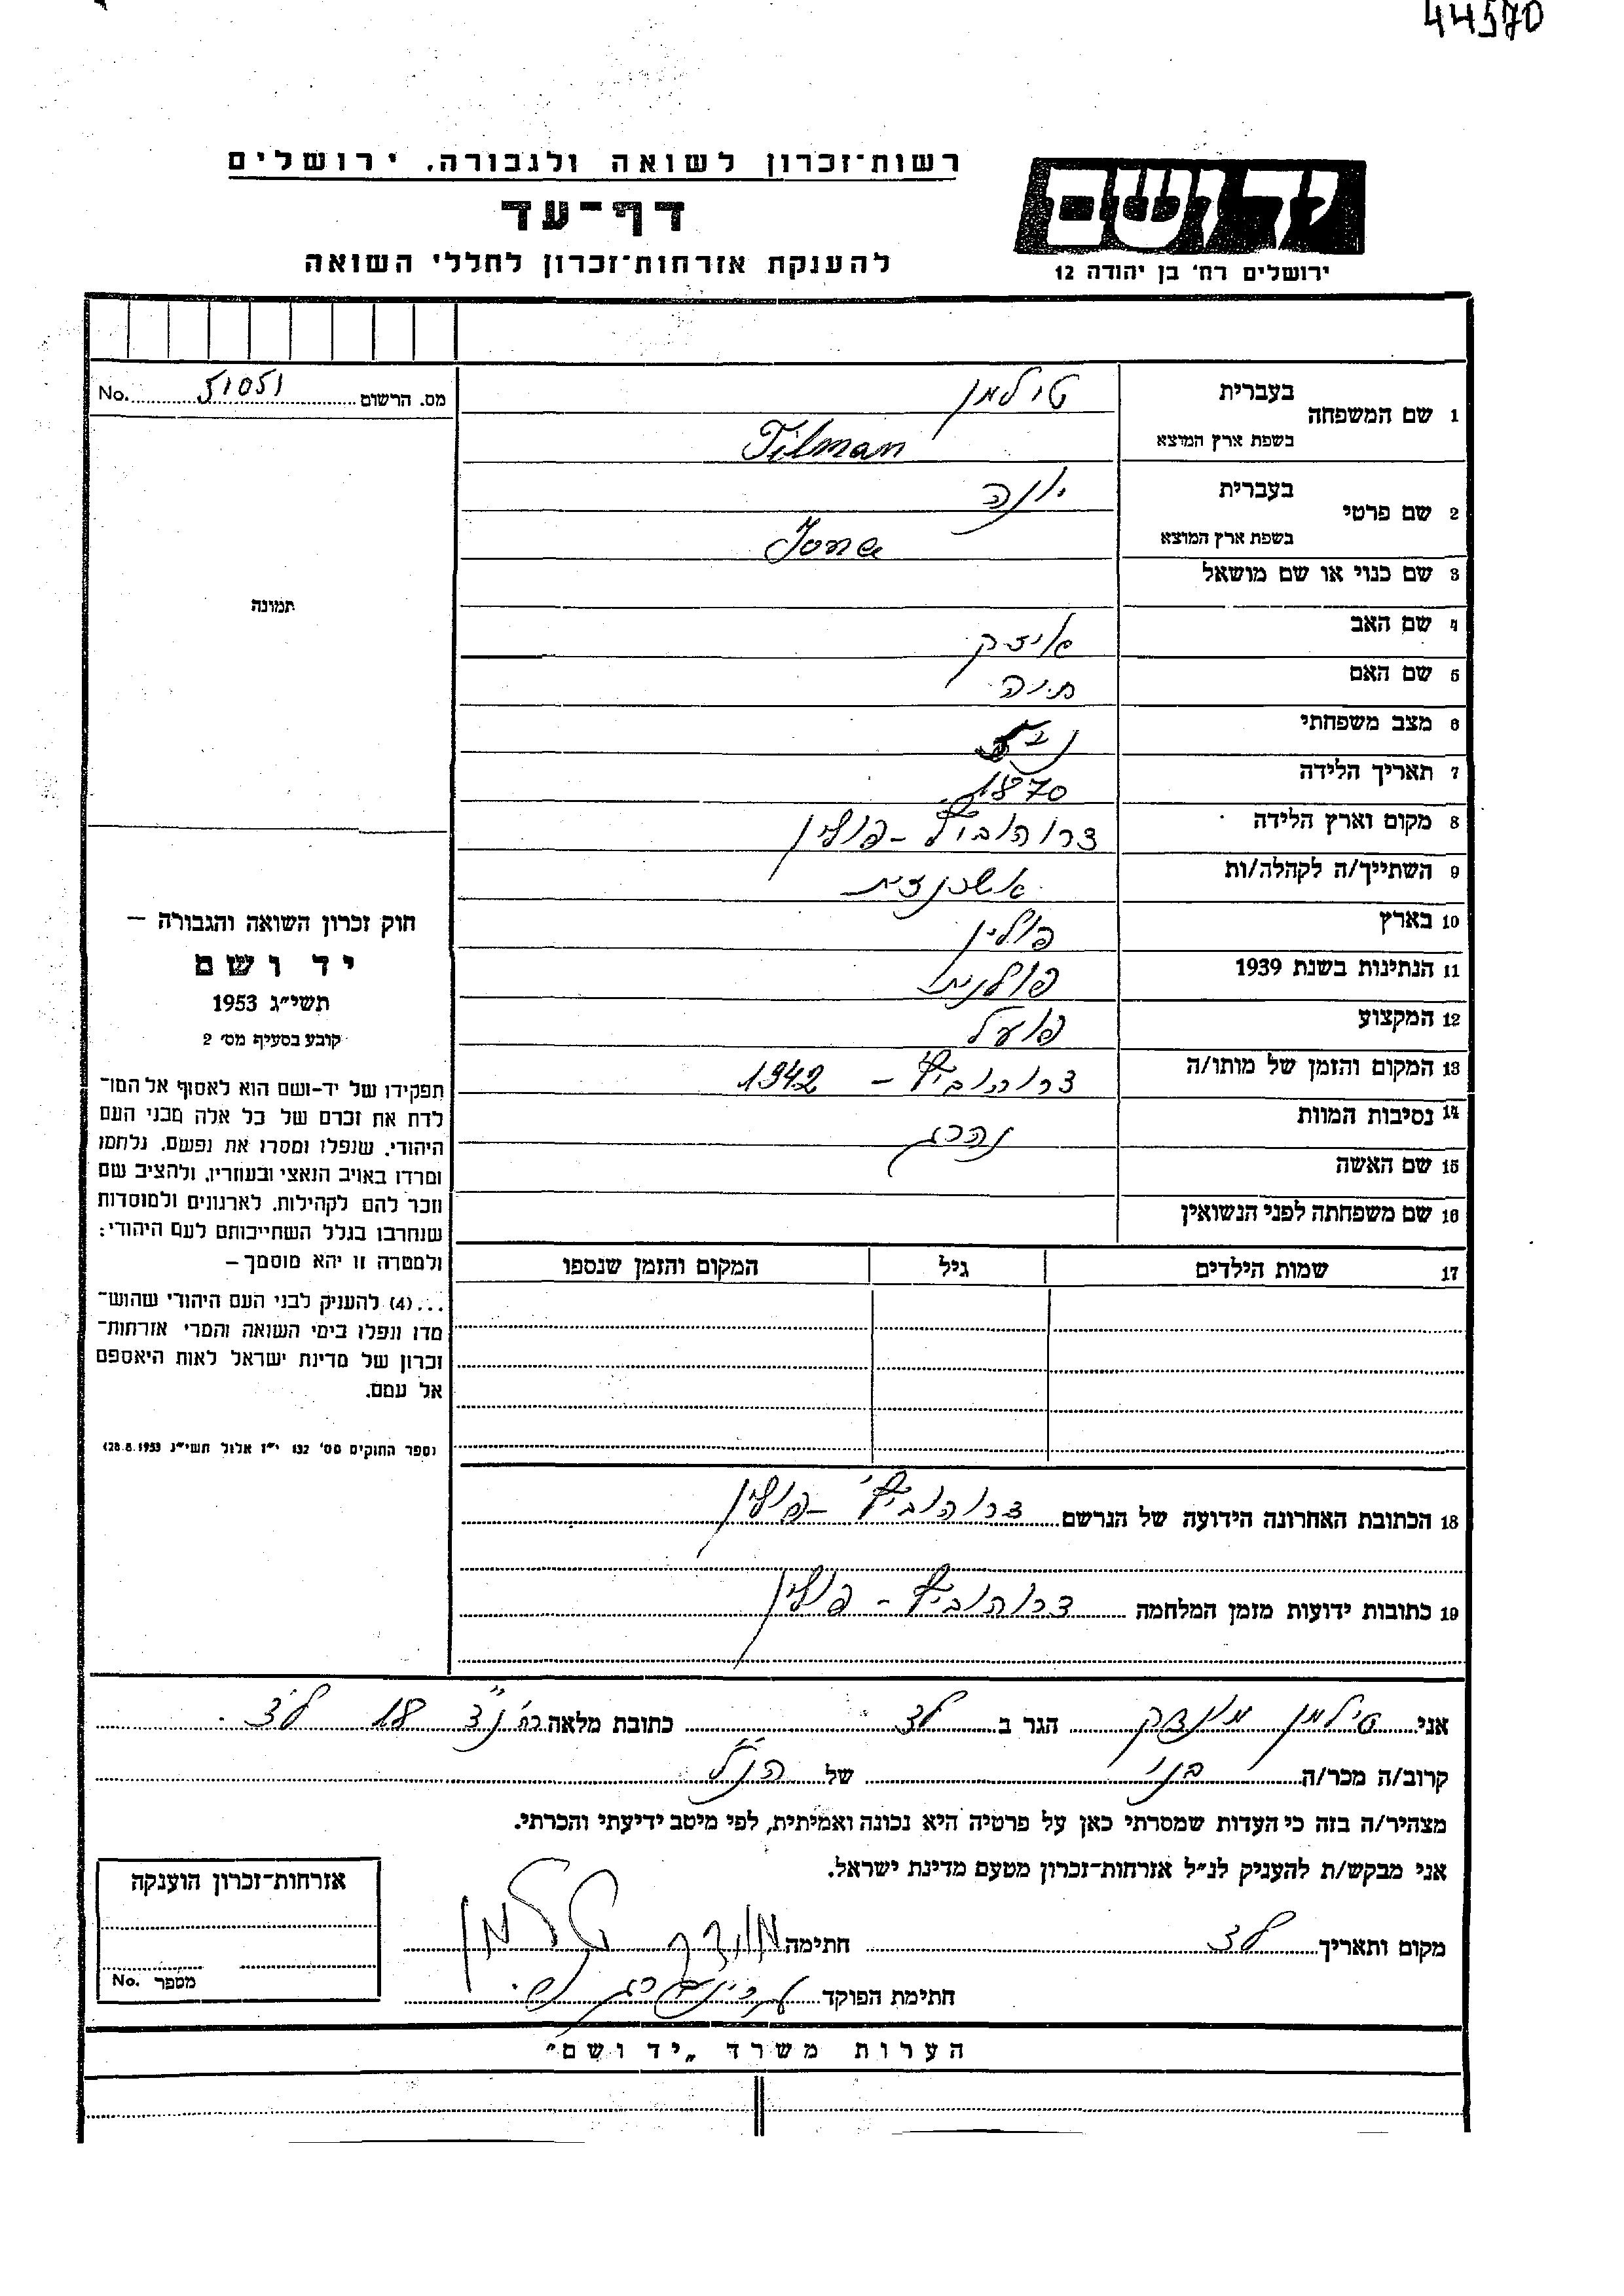 44570
רשות־זכרון לשואה ולגבורה, ירושלים
דף־עד
להענקת אזרחות־זכרון לחללי השואה
יד ושם
ירושלים רח' בן יהודה 12
מס. הרשום 51051 No.
1 שם המשפחה
בעברית טילמן
בשפת ארץ המוצא Tilman
2 שם פרטי
בעברית יונה
בשפת ארץ המוצא Jona
3 שם כנוי או שם מושאל
4 שם האב איציק
5 שם האם
6 מצב משפחתי
7 תאריך הלידה 1870
8 מקום וארץ הלידה דרוהוביץ' - פולין
9 השתייך/ה לקהלה/ות אשכנזית
10 בארץ פולין
11 הנתינות בשנת 1939 פולנית
12 המקצוע פועל
13 המקום והזמן של מותו/ה דרוהוביץ' - 1942
14 נסיבות המוות נהרג
15 שם האשה
16 שם משפחתה לפני הנשואין
17 שמות הילדים גיל המקום והזמן שנספו
18 הכתובת האחרונה הידועה של הנרשם דרוהוביץ' - פולין
19 כתובות ידועות מזמן המלחמה דרוהוביץ' - פולין
תמונה
חוק זכרון השואה והגבורה –
יד ושם
תשי"ג 1953
קובע בסעיף מס' 2
תפקידו של יד-ושם הוא לאסוף אל המו־
לדת את זכרם של כל אלה מבני העם
היהודי, שנפלו ומסרו את נפשם, נלחמו
ומרדו באויב הנאצי ובעוזריו, ולהציב שם
וזכר להם לקהילות, לארגונים ולמוסדות
שנחרבו בגלל השתייכותם לעם היהודי;
ולמטרה זו יהא מוסמך –
...(4) להעניק לבני העם היהודי שהוש־
מדו ונפלו בימי השואה והמרי אזרחות־
זכרון של מדינת ישראל לאות היאספם
אל עמם.
(ספר החוקים מס' 132 י"ז אלול תשי"ג 28.8.1953)
אני טילמן הגר ב לוד כתובת מלאה 18 לוד
קרוב/ה מכר/ה בני של הנ"ל
מצהיר/ה בזה כי העדות שמסרתי כאן על פרטיה היא נכונה ואמיתית, לפי מיטב ידיעתי והכרתי.
אני מבקש/ת להעניק לנ"ל אזרחות־זכרון מטעם מדינת ישראל.
מקום ותאריך לוד חתימה טילמן
חתימת הפוקד
אזרחות־זכרון הוענקה
מספר No.
הערות משרד „יד ושם"